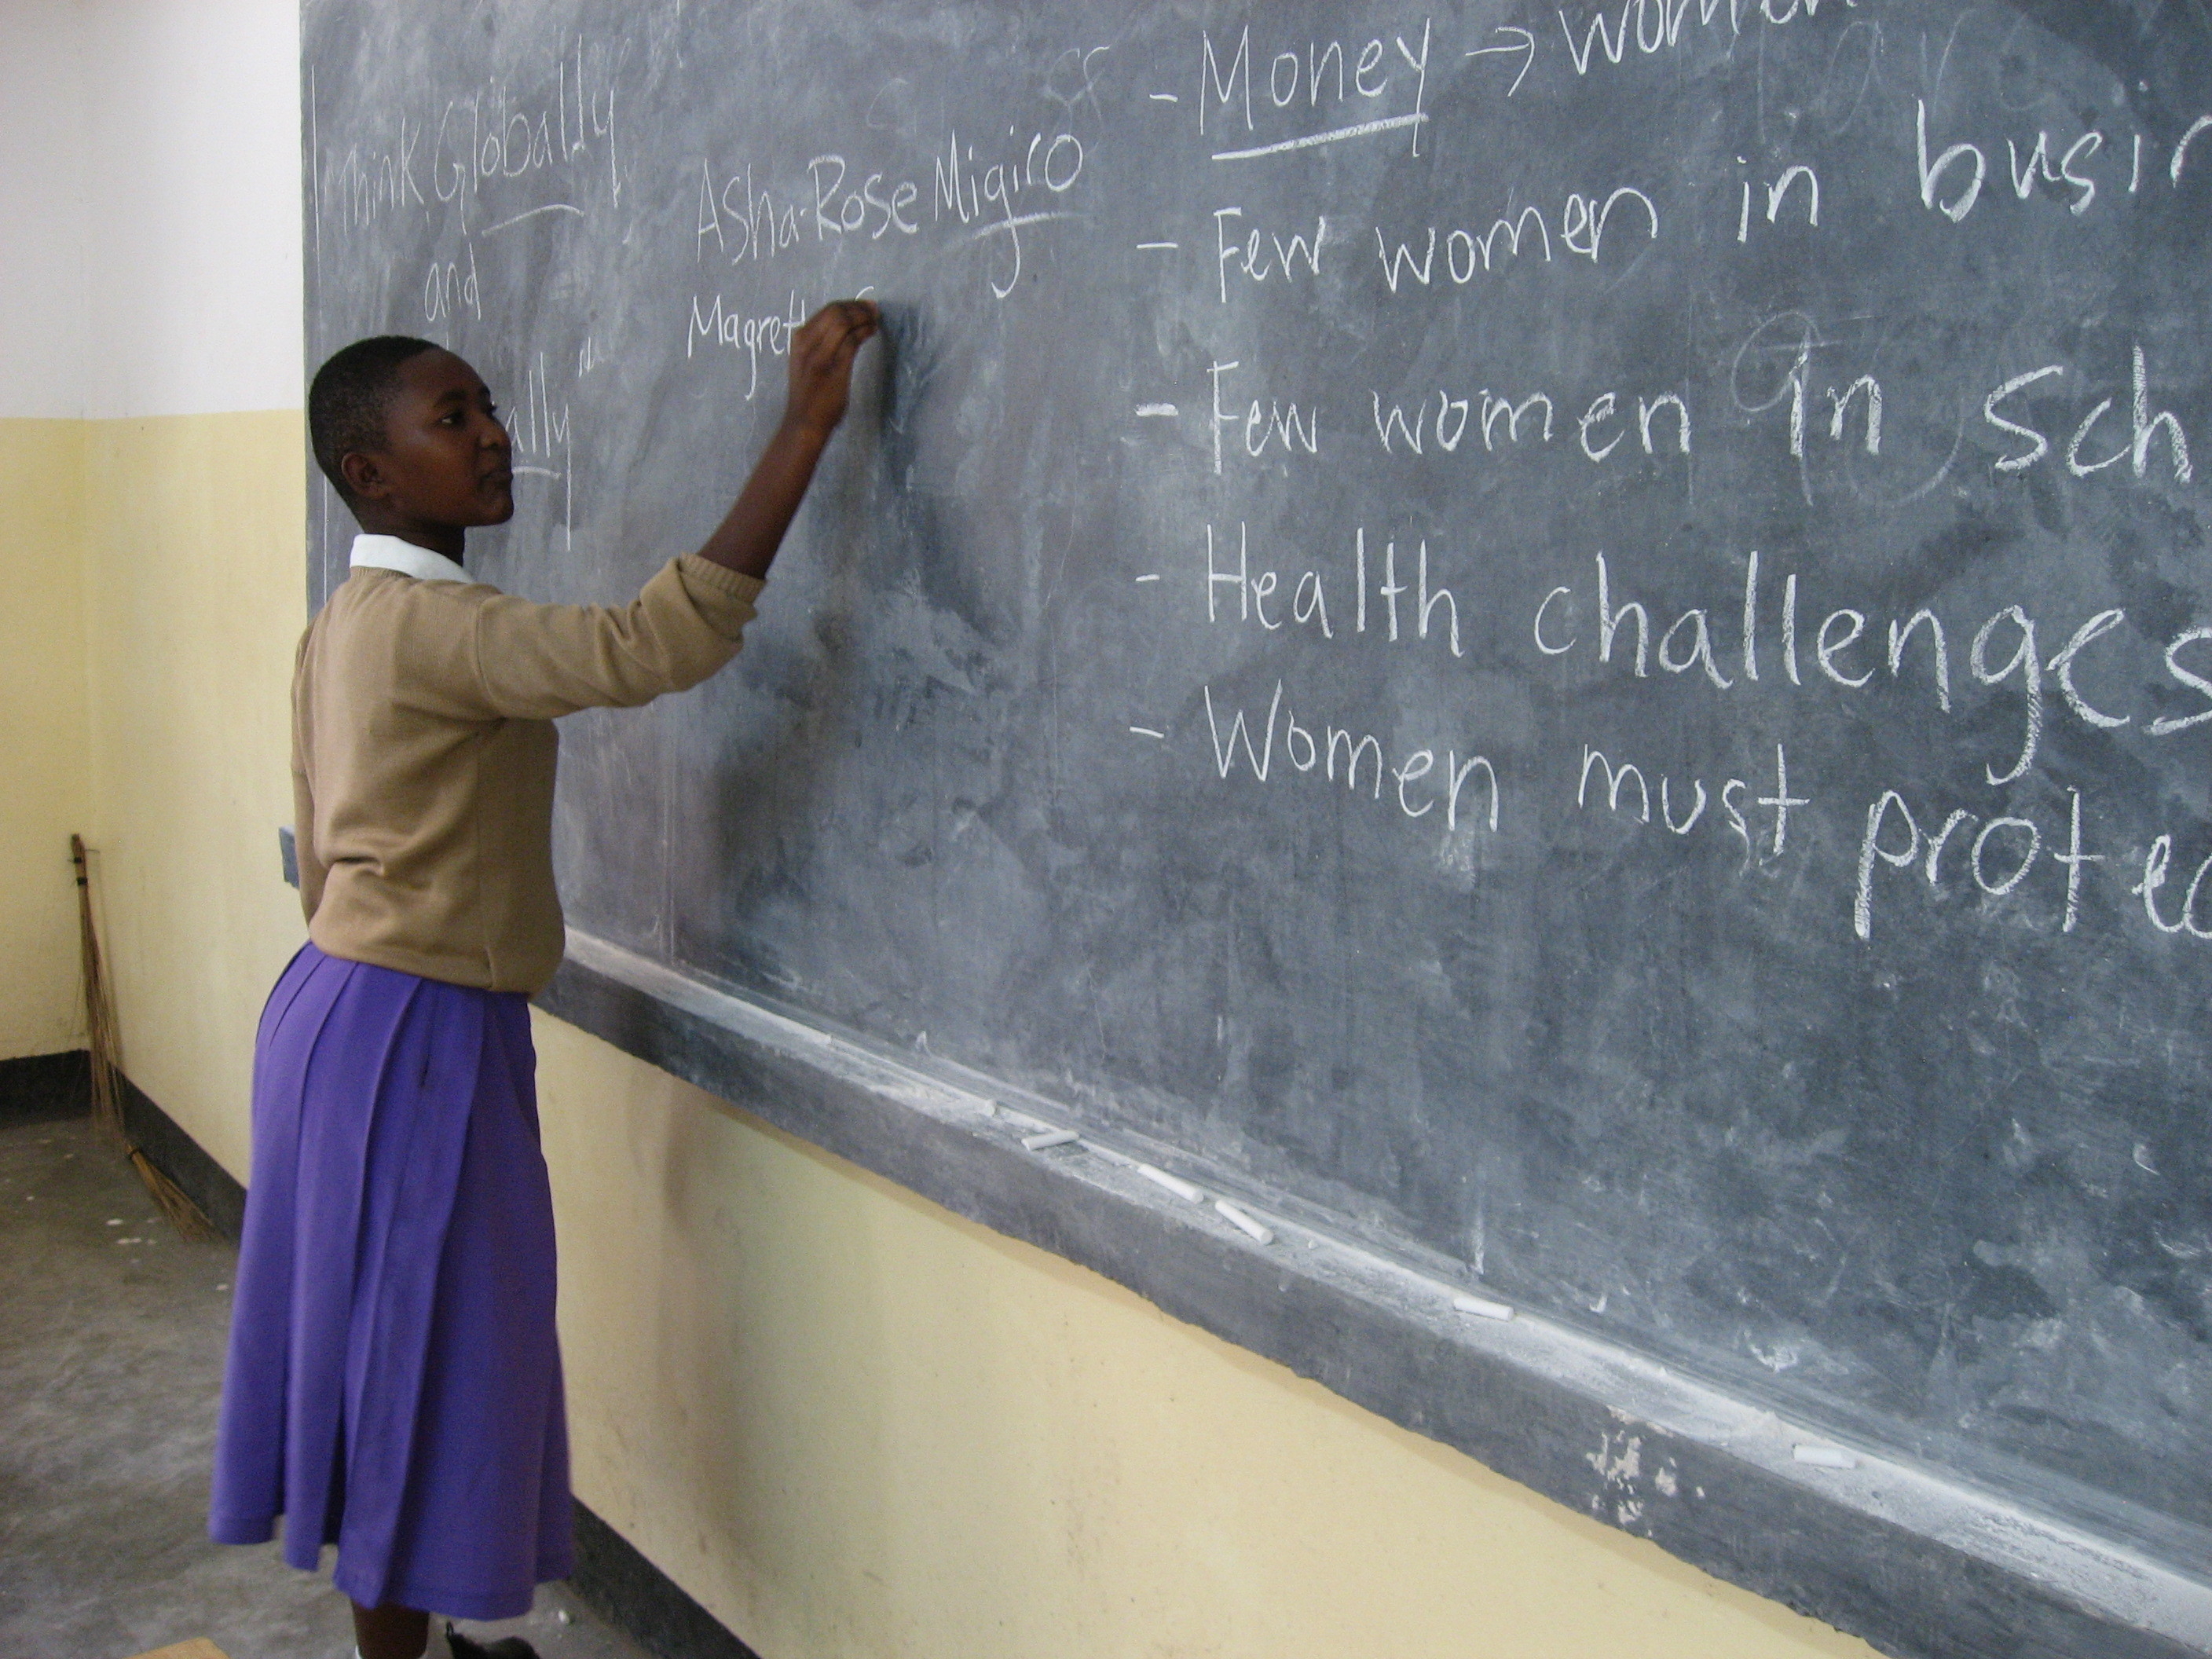 Think Globally
and
ally"
Asha-Rose Migiro
Magret
- Money → women
- Few women in busin
- Few women in sch
- Health challenges
- Women must protec